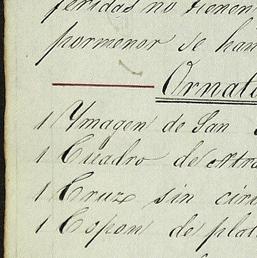 feridas no tienen
pormenor se han
Ornato
1 Ymagen de San
1 Cuadro de Ntra
1 Cruz sin
1 Copon de plat